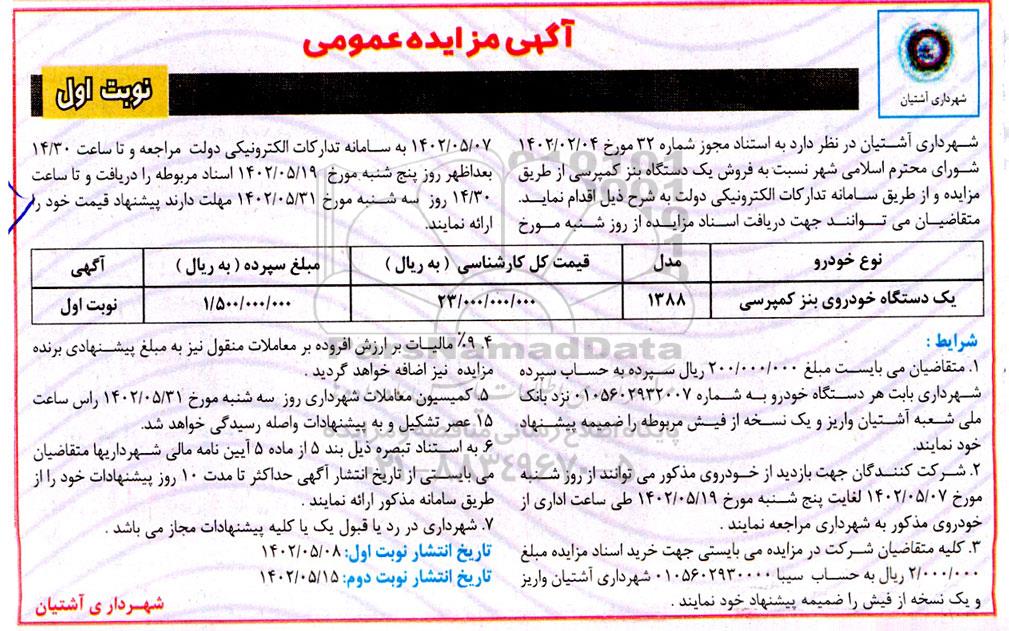 آگهی مزایده عمومی
شهرداری آشتیان
نوبت اول
شهرداری آشتیان در نظر دارد به استناد مجوز شماره ۳۲ مورخ ۱۴۰۲/۰۲/۰۴
شورای محترم اسلامی شهر نسبت به فروش یک دستگاه بنز کمپرسی از طریق
مزایده و از طریق سامانه تدارکات الکترونیکی دولت به شرح ذیل اقدام نماید.
متقاضیان می توانند جهت دریافت اسناد مزایده از روز شنبه مورخ
۱۴۰۲/۰۵/۰۷ به سامانه تدارکات الکترونیکی دولت مراجعه و تا ساعت ۱۴/۳۰
بعداظهر روز پنج شنبه مورخ ۱۴۰۲/۰۵/۱۹ اسناد مربوطه را دریافت و تا ساعت
۱۴/۳۰ روز سه شنبه مورخ ۱۴۰۲/۰۵/۳۱ مهلت دارند پیشنهاد قیمت خود را
ارائه نمایند.
نوع خودرو مدل قیمت کل کارشناسی ( به ریال ) مبلغ سپرده ( به ریال ) آگهی
یک دستگاه خودروی بنز کمپرسی ۱۳۸۸ ۲۳/۰۰۰/۰۰۰/۰۰۰ ۱/۵۰۰/۰۰۰/۰۰۰ نوبت اول
شرایط :
۱. متقاضیان می بایست مبلغ ۲۰۰/۰۰۰/۰۰۰ ریال سپرده به حساب سپرده
شهرداری بابت هر دستگاه خودرو به شماره ۰۱۰۵۶۰۲۹۳۲۰۰۷ نزد بانک
ملی شعبه آشتیان واریز و یک نسخه از فیش مربوطه را ضمیمه پیشنهاد
خود نمایند.
۲. شرکت کنندگان جهت بازدید از خودروی مذکور می توانند از روز شنبه
مورخ ۱۴۰۲/۰۵/۰۷ لغایت پنج شنبه مورخ ۱۴۰۲/۰۵/۱۹ طی ساعت اداری از
خودروی مذکور به شهرداری مراجعه نمایند .
۳. کلیه متقاضیان شرکت در مزایده می بایستی جهت خرید اسناد مزایده مبلغ
۲/۰۰۰/۰۰۰ ریال به حساب سیبا ۰۱۰۵۶۰۲۹۳۰۰۰۰ شهرداری آشتیان واریز
و یک نسخه از فیش را ضمیمه پیشنهاد خود نمایند .
۴. ۹٪ مالیات بر ارزش افزوده بر معاملات منقول نیز به مبلغ پیشنهادی برنده
مزایده نیز اضافه خواهد گردید .
۵. کمیسیون معاملات شهرداری روز سه شنبه مورخ ۱۴۰۲/۰۵/۳۱ راس ساعت
۱۵ عصر تشکیل و به پیشنهادات واصله رسیدگی خواهد شد.
۶. به استناد تبصره ذیل بند ۵ از ماده ۵ آیین نامه مالی شهرداریها متقاضیان
می بایستی از تاریخ انتشار آگهی حداکثر تا مدت ۱۰ روز پیشنهادات خود را از
طریق سامانه مذکور ارائه نمایند .
۷. شهرداری در رد یا قبول یک یا کلیه پیشنهادات مجاز می باشد .
تاریخ انتشار نوبت اول: ۱۴۰۲/۰۵/۰۸
تاریخ انتشار نوبت دوم: ۱۴۰۲/۰۵/۱۵
شهرداری آشتیان